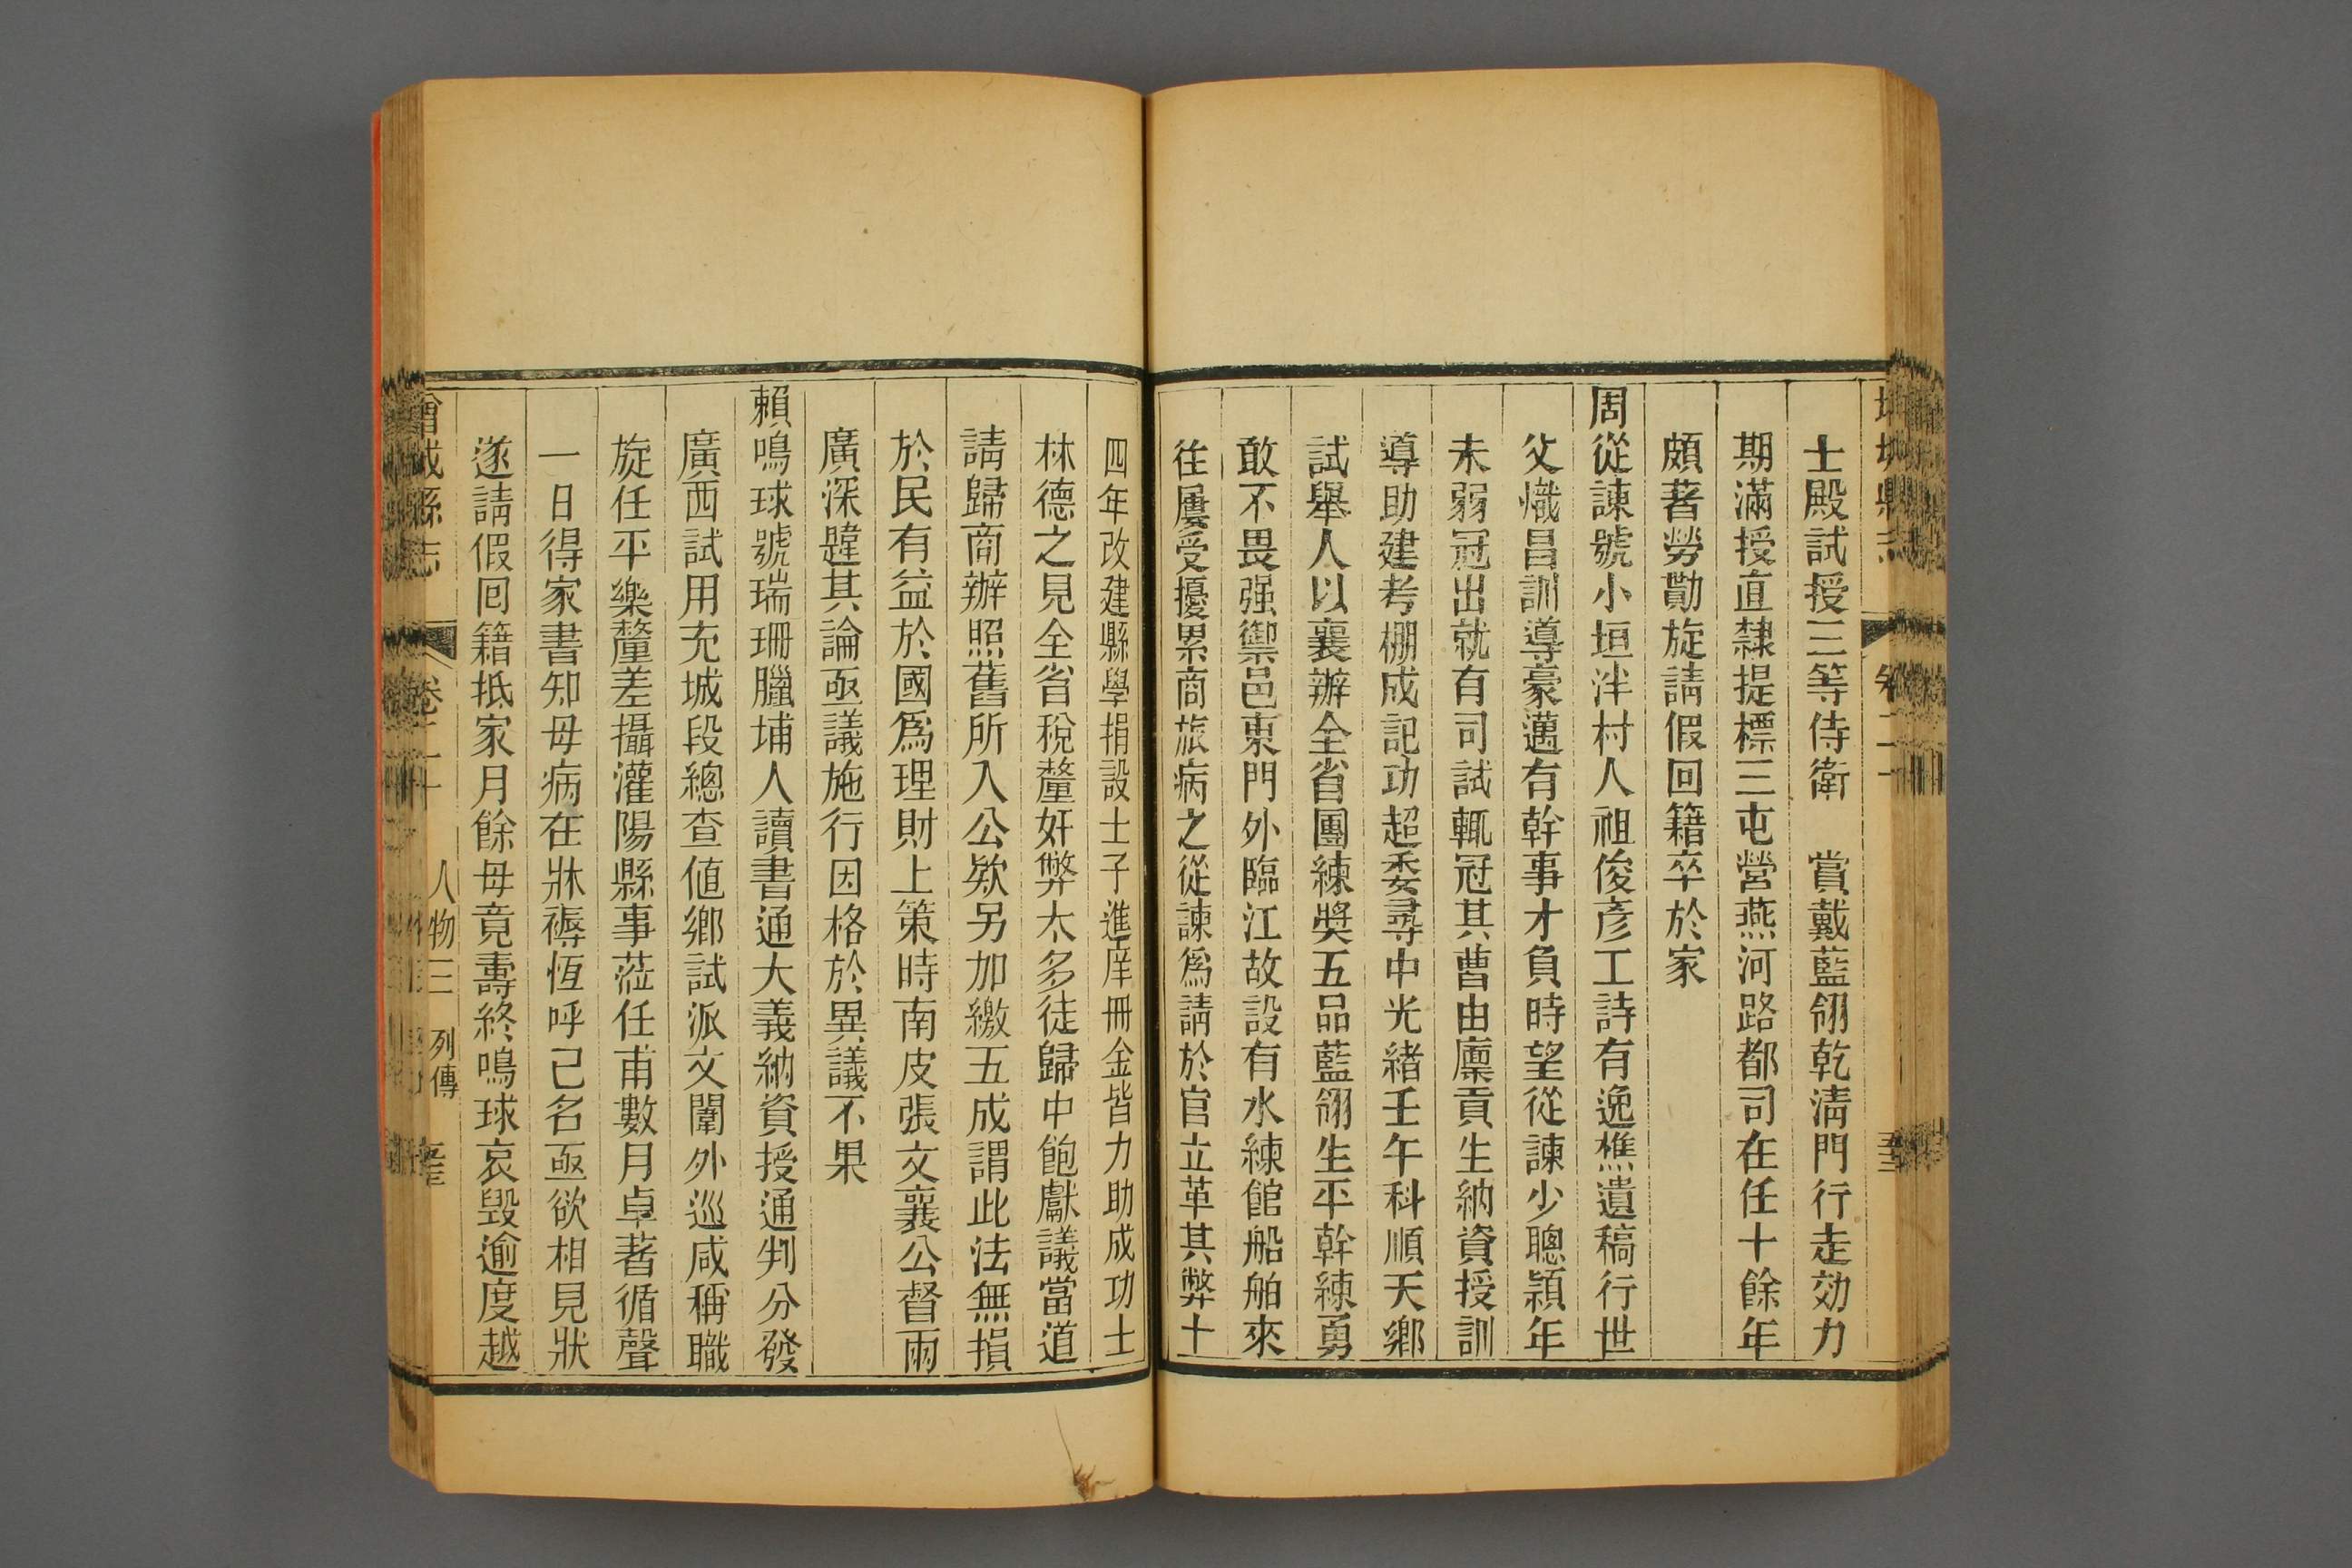 士殿試授三等侍衛　賞戴藍翎乾清門行走効力
期滿授直隸提標三屯營燕河路都司在任十餘年
頗著勞勩旋請假回籍卒於家
周從諫號小垣泮村人祖俊彥工詩有逸樵遺稿行世
父熾昌訓導豪邁有幹事才負時望從諫少聰穎年
未弱冠出就有司試輒冠其曹由廩貢生納資授訓
導助建考棚成記功超委尋中光緒壬午科順天鄉
試舉人以襄辦全省團練獎五品藍翎生平幹練勇
敢不畏强禦邑東門外臨江故設有水練館船舶來
往屢受擾累商旅病之從諫爲請於官立革其弊十
四年改建縣學捐設士子進庠冊金皆力助成功士
林德之見全省稅釐奸弊太多徒歸中飽獻議當道
請歸商辦照舊所入公欵另加繳五成謂此法無損
於民有益於國爲理財上策時南皮張文襄公督兩
廣深韙其論亟議施行因格於異議不果
賴鳴球號瑞珊臘埔人讀書通大義納資授通判分發
廣西試用充城段總查値鄉試派文闈外巡咸稱職
旋任平樂釐差攝灌陽縣事蒞任甫數月卓著循聲
一日得家書知母病在牀褥恆呼己名亟欲相見狀
遂請假回籍抵家月餘母竟壽終鳴球哀毀逾度越
增城縣志
卷二十
人物三　列傳